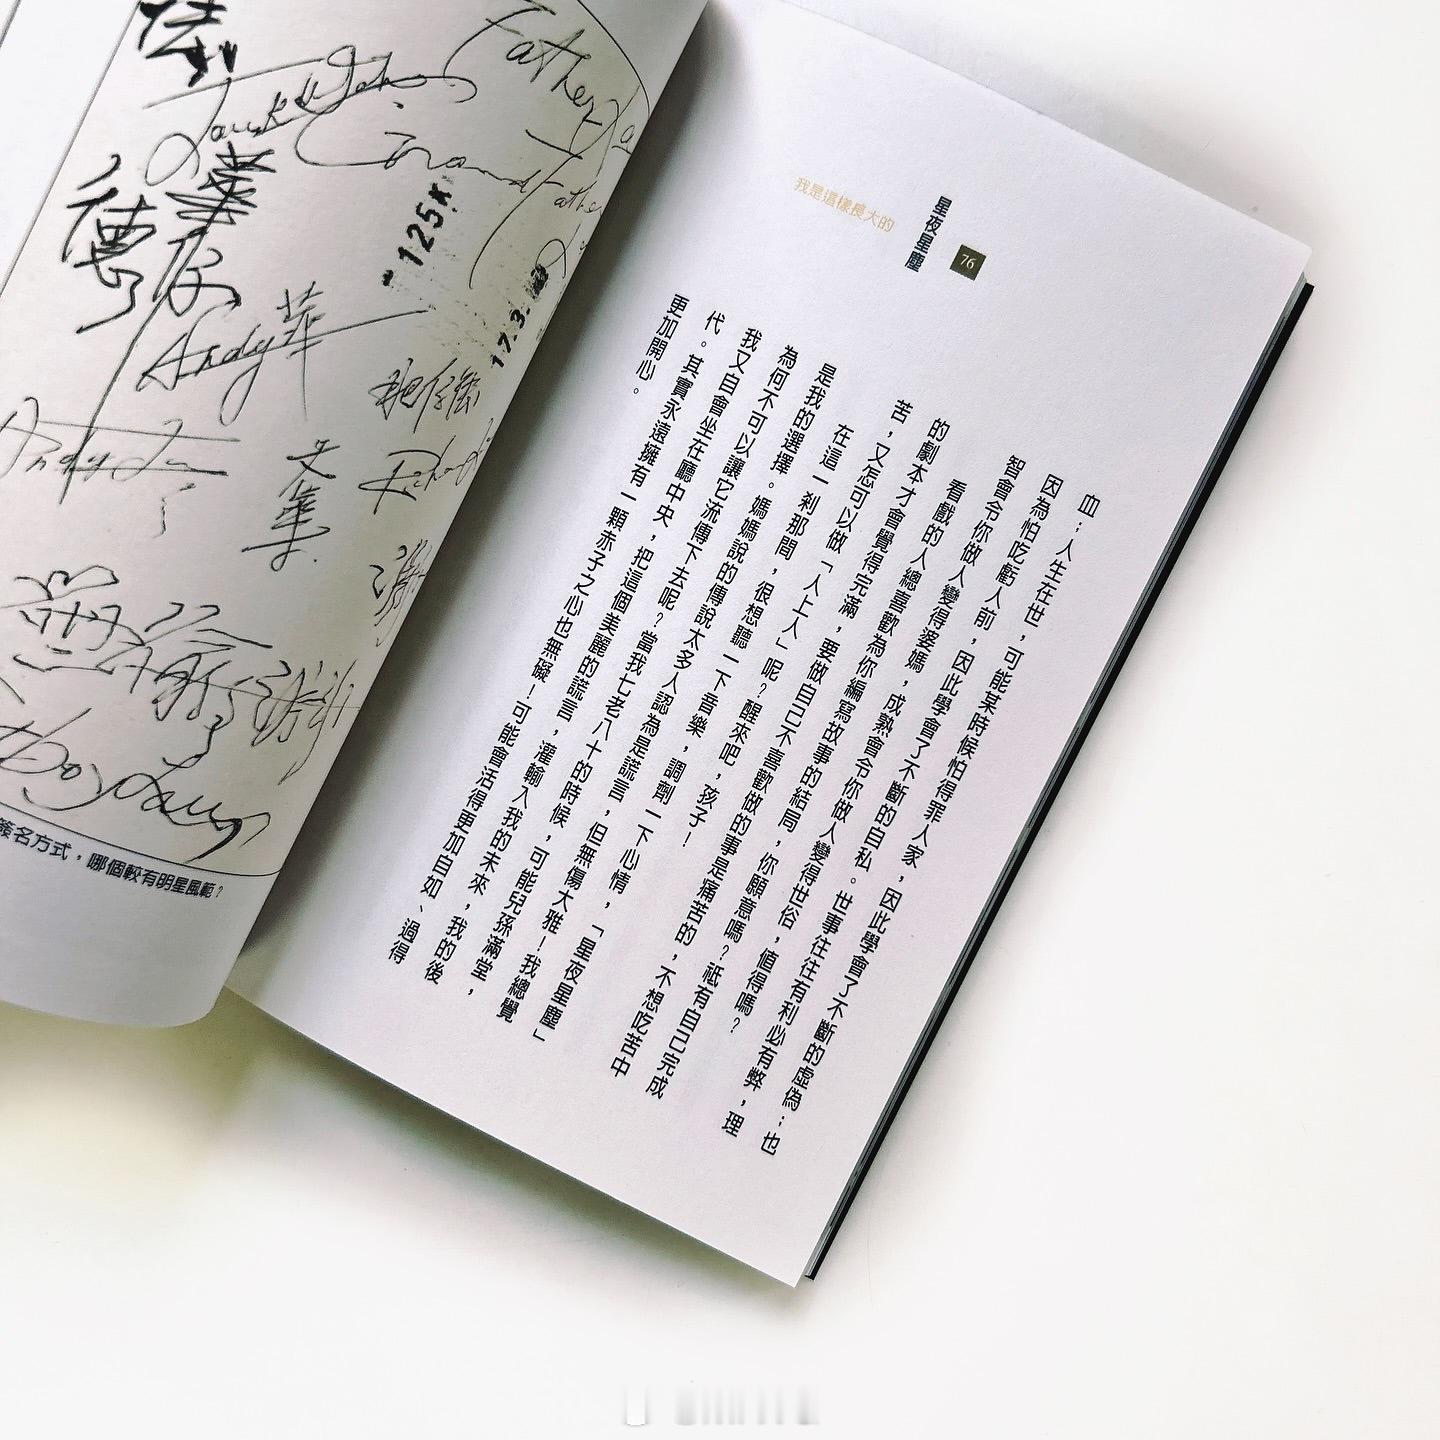 我是這樣長大的
星夜星塵
76
血；人生在世，可能某時候怕得罪人家，因此學會了不斷的虛偽；也
因為怕吃虧人前，因此學會了不斷的自私。世事往往有利必有弊，理
智會令你做人變得婆媽，成熟會令你做人變得世俗，值得嗎？
看戲的人總喜歡為你編寫故事的結局，你願意嗎？祗有自己完成
的劇本才會覺得完滿，要做自己不喜歡做的事是痛苦的，不想吃苦中
苦，又怎可以做「人上人」呢？醒來吧，孩子！
在這一剎那間，很想聽一下音樂，調劑一下心情，「星夜星塵」
是我的選擇。媽媽說的傳說太多人認為是謊言，但無傷大雅！我總覺
為何不可以讓它流傳下去呢？當我七老八十的時候，可能兒孫滿堂，
我又自會坐在廳中央，把這個美麗的謊言，灌輸入我的未來，我的後
代。其實永遠擁有一顆赤子之心也無礙！可能會活得更加自如、過得
更加開心。
Father
Grandfather
125K
17.3.
德
華仔
Andy華
Andy
簽名方式，哪個較有明星風範？